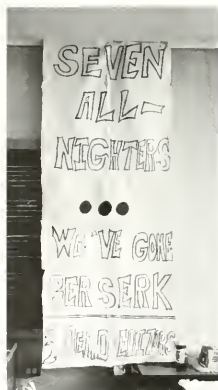 SEVEN
ALL-
NIGHTERS
...
WE'VE GONE
BERSERK